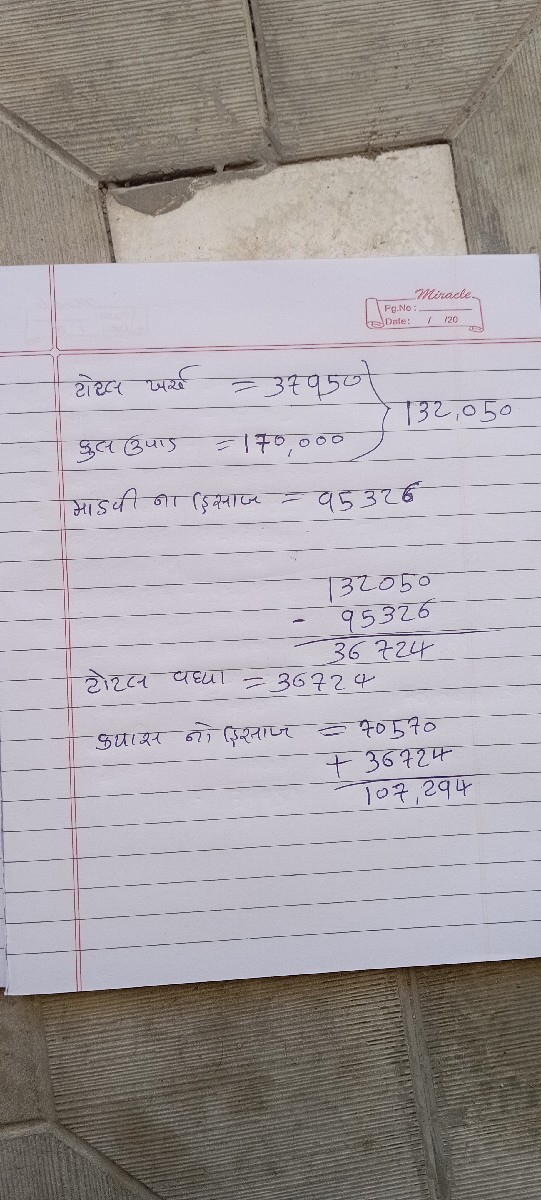 Miracle
Pg.No :
Date: / /20
ટોટલ ખર્ચ = 37950
કુલ ઉપાડ = 170,000
132,050
માડવી ના હિસાબ = 95326
132050
- 95326
36724
ટોટલ વધ્યા = 36724
કપાસ નો હિસાબ = 70570
+ 36724
107,294